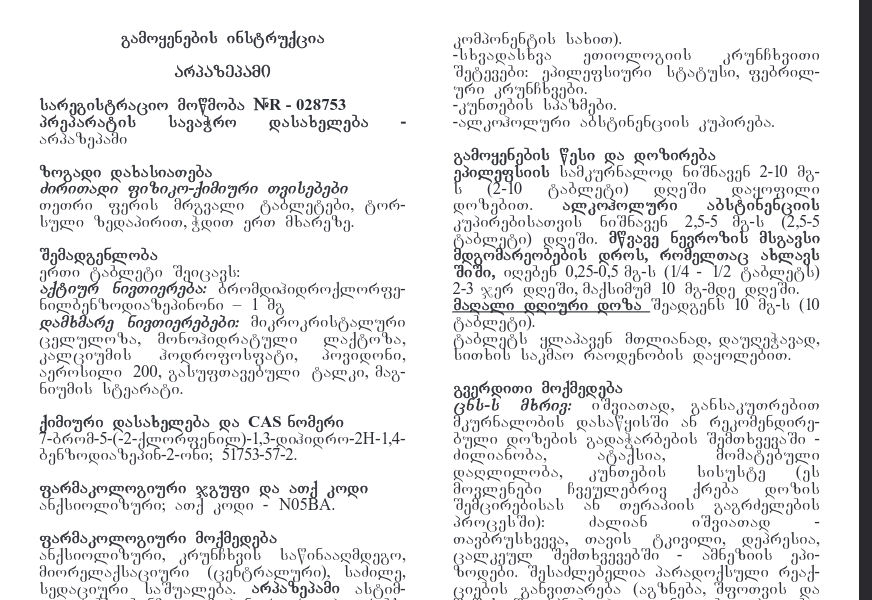 გამოყენების ინსტრუქცია
არპაზეპამი
სარეგისტრაციო მოწმობა №R - 028753
პრეპარატის სავაჭრო დასახელება -
არპაზეპამი
ზოგადი დახასიათება
ძირითადი ფიზიკო-ქიმიური თვისებები
თეთრი ფერის მრგვალი ტაბლეტები, ტორ-
სული ზედაპირით, ჭდით ერთ მხარეზე.
შემადგენლობა
ერთი ტაბლეტი შეიცავს:
აქტიურ ნივთიერება: ბრომდიჰიდროქლორფე-
ნილბენზოდიაზეპინონი – 1 მგ
დამხმარე ნივთიერებები: მიკროკრისტალური
ცელულოზა, მონოჰიდრატული ლაქტოზა,
კალციუმის ჰოდროფოსფატი, პოვიდონი,
აეროსილი 200, გასუფთავებული ტალკი, მაგ-
ნიუმის სტეარატი.
ქიმიური დასახელება და CAS ნომერი
7-ბრომ-5-(-2-ქლორფენილ)-1,3-დიჰიდრო-2H-1,4-
ბენზოდიაზეპინ-2-ონი; 51753-57-2.
ფარმაკოლოგიური ჯგუფი და ათქ კოდი
ანქსიოლიზური; ათქ კოდი - N05BA.
ფარმაკოლოგიური მოქმედება
ანქსიოლიზური, კრუნჩხვის საწინააღმდეგო,
მიორელაქსაციური (ცენტრალური), საძილე,
სედაციური საშუალება. არპაზეპამი ასტიმ-
კომპონენტის სახით).
-სხვადასხვა ეთიოლოგიის კრუნჩხვითი
შეტევები: ეპილეფსიური სტატუსი, ფებრილ-
ური კრუნჩხვები.
-კუნთების სპაზმები.
-ალკოჰოლური აბსტინენციის კუპირება.
გამოყენების წესი და დოზირება
ეპილეფსიის სამკურნალოდ ნიშნავენ 2-10 მგ-
ს (2-10 ტაბლეტი) დღეში დაყოფილი
დოზებით. ალკოჰოლური აბსტინენციის
კუპირებისათვის ნიშნავენ 2,5-5 მგ-ს (2,5-5
ტაბლეტი) დღეში. მწვავე ნევროზის მსგავსი
მდგომარეობების დროს, რომელთაც ახლავს
შიში, იღებენ 0,25-0,5 მგ-ს (1/4 - 1/2 ტაბლეტს)
2-3 ჯერ დღეში, მაქსიმუმ 10 მგ-მდე დღეში.
მაღალი დღიური დოზა შეადგენს 10 მგ-ს (10
ტაბლეტი).
ტაბლეტს ყლაპავენ მთლიანად, დაუღეჭავად,
სითხის საკმაო რაოდენობის დაყოლებით.
გვერდითი მოქმედება
ცნს-ს მხრივ: იშვიათად, განსაკუთრებით
მკურნალობის დასაწყისში ან რეკომენდირე-
ბული დოზების გადაჭარბების შემთხვევაში -
ძილიანობა, ატაქსია, მომატებული
დაღლილობა, კუნთების სისუსტე (ეს
მოვლენები ჩვეულებრივ ქრება დოზის
შემცირებისას ან თერაპიის გაგრძელების
პროცესში): ძალიან იშვიათად -
თავბრუსხვევა, თავის ტკივილი, დეპრესია,
ცალკეულ შემთხვევებში - ამნეზიის ეპი-
ზოდები. შესაძლებელია პარადოქსული რეაქ-
ციების განვითარება (აგზნება, შფოთვის და